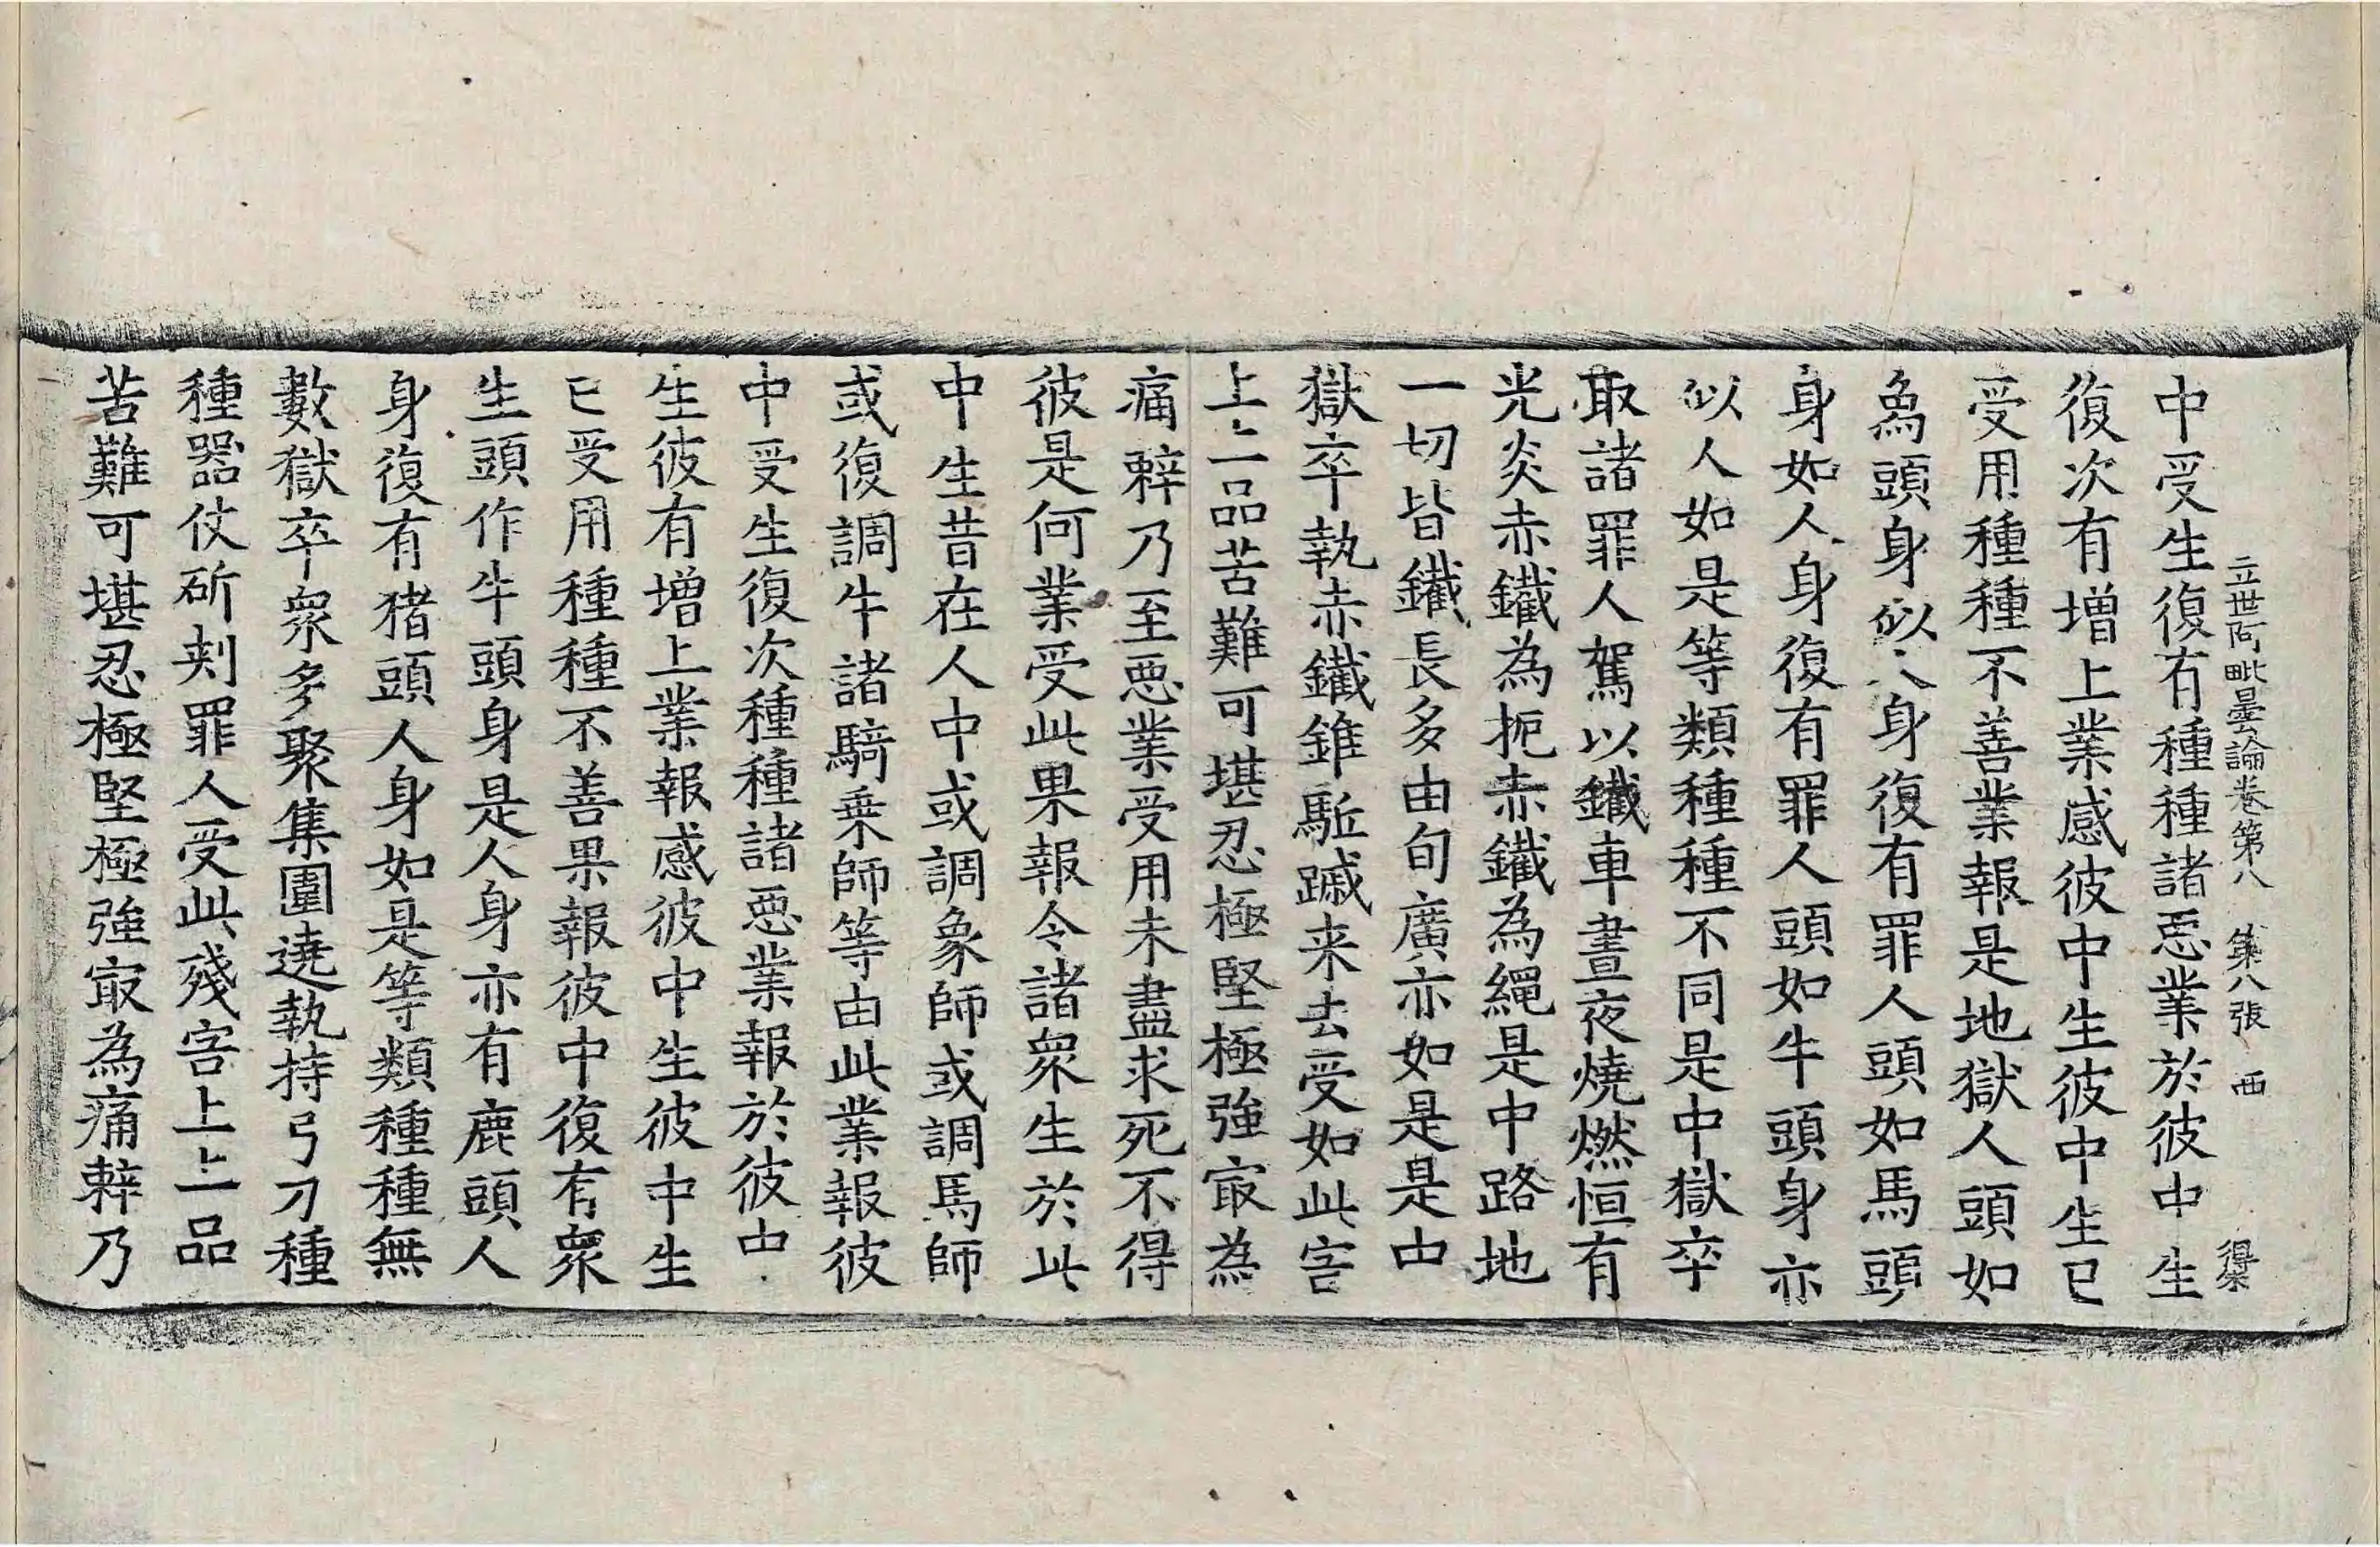 立世阿毗曇論卷第八 第八張 西 得柴
中受生復有種種諸惡業於彼中生
復次有增上業感彼中生彼中生已
受用種種不善業報是地獄人頭如
為頭身似人身復有罪人頭如馬頭
身如人身復有罪人頭如牛頭身亦
似人如是等類種種不同是中獄卒
取諸罪人駕以鐵車晝夜燒燃恒有
光炎赤鐵為扼赤鐵為繩是中路地
一切皆鐵長多由旬廣亦如是是中
獄卒執赤鐵錐駈蹴来去受如此害
上上品苦難可堪忍極堅極強㝡為
痛辢乃至惡業受用未盡求死不得
彼是何業受此果報令諸衆生於此
中生昔在人中或調象師或調馬師
或復調牛諸騎乗師等由此業報彼
中受生復次種種諸惡業報於彼中
生彼有增上業報感彼中生彼中生
已受用種種不善果報彼中復有衆
生頭作牛頭身是人身亦有鹿頭人
身復有猪頭人身如是等類種種無
數獄卒衆多聚集圍遶執持弓刀種
種器仗斫刾罪人受此殘害上上品
苦難可堪忍極堅極強㝡為痛辢乃